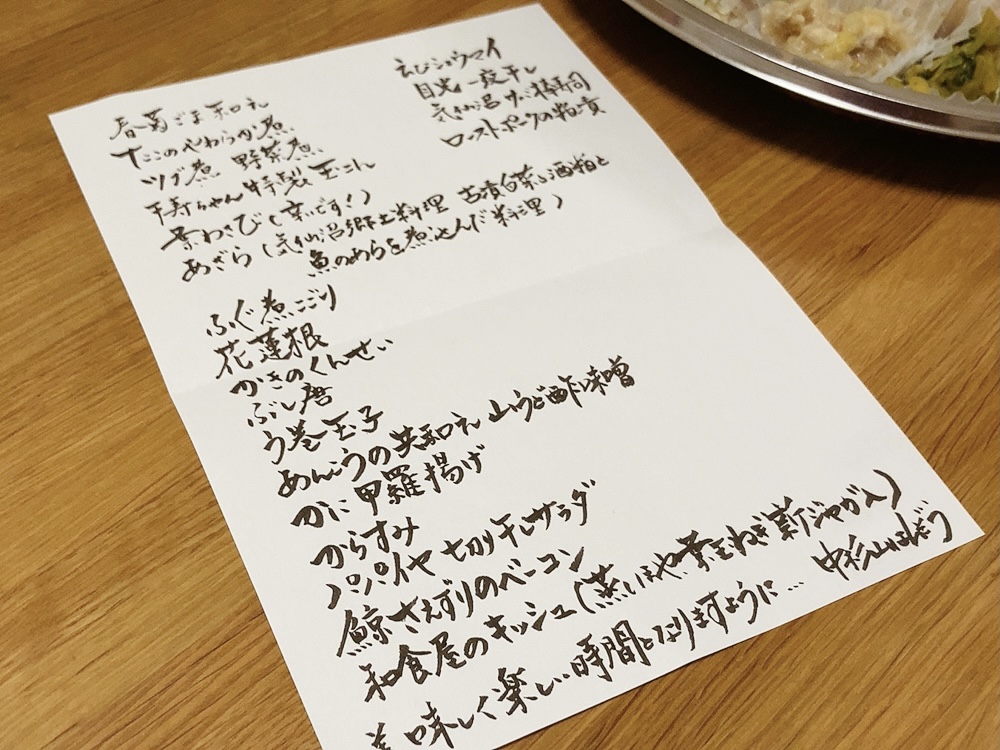 春菊ごま和え
たこのやわらか煮
ツブ煮 野菜煮
寿ちゃん特製玉こん
葉わさび(辛いです!)
あざら(気仙沼郷土料理 古漬白菜と酒粕と
魚のあらを煮込んだ料理)
ふぐ煮こごり
花蓮根
かきのくんせい
ぶし唐
う巻玉子
あんこうの共和え 山うど酢味噌
かに甲羅揚げ
からすみ
パパイヤ切り干しサラダ
鯨さえずりのベーコン
和食屋のキッシュ(蒸しほや葉玉ねぎ新ジャガ入)
美味しく楽しい時間となりますように…
中杉山ほぞう
えびシウマイ
目光一夜干し
気仙沼サバ棒寿司
ローストポークの粕漬